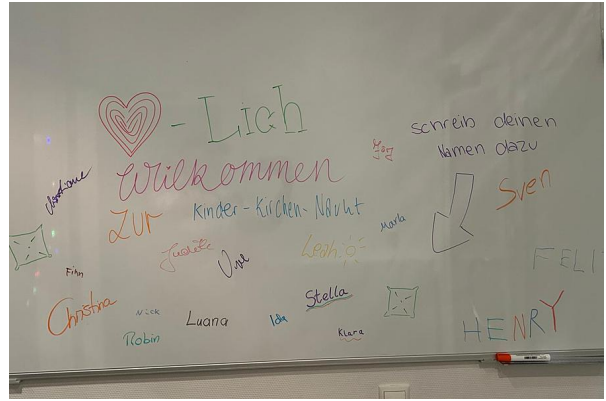 - Lich
Willkommen
zur
Kinder-Kirchen-Nacht
schreib deinen
Namen dazu
Sven
Marla
Judith
Leah
FELI
Finn
Christina
Nick
Robin
Luana
Ida
Stella
Klara
HENRY